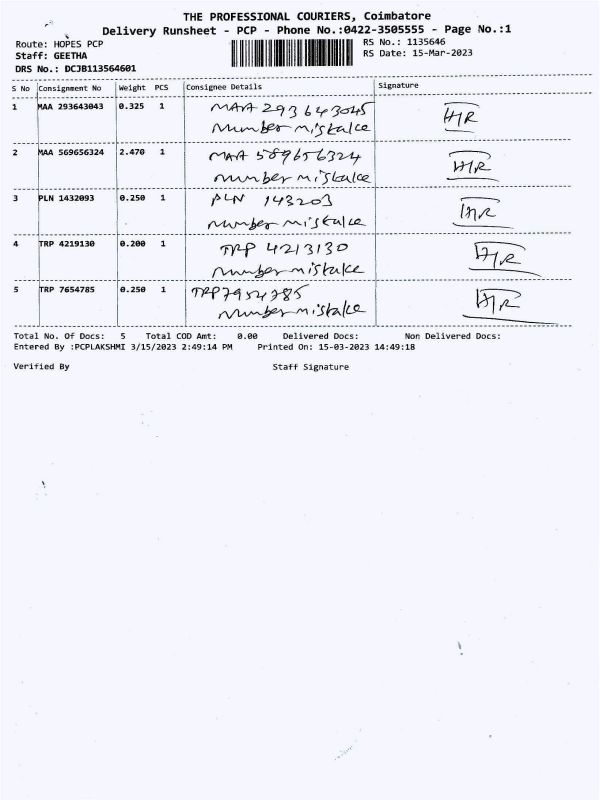 THE PROFESSIONAL COURIERS, Coimbatore
Delivery Runsheet - PCP - Phone No.:0422-3505555 - Page No.:1
Route: HOPES PCP
RS No.: 1135646
Staff: GEETHA
RS Date: 15-Mar-2023
DRS No.: DCJB113564601
S No Consignment No Weight PCS Consignee Details Signature
1 MAA 293643043 0.325 1 MAA 293643045
Number mistake
2 MAA 569656324 2.470 1 MAA 589656324
Number mistake
3 PLN 1432093 0.250 1 PLN 143203
Number mistake
4 TRP 4219130 0.200 1 TRP 4213130
Number mistake
5 TRP 7654785 0.250 1 TRP 7954785
Number mistake
Total No. Of Docs: 5 Total COD Amt: 0.00 Delivered Docs: Non Delivered Docs:
Entered By :PCPLAKSHMI 3/15/2023 2:49:14 PM Printed On: 15-03-2023 14:49:18
Verified By Staff Signature